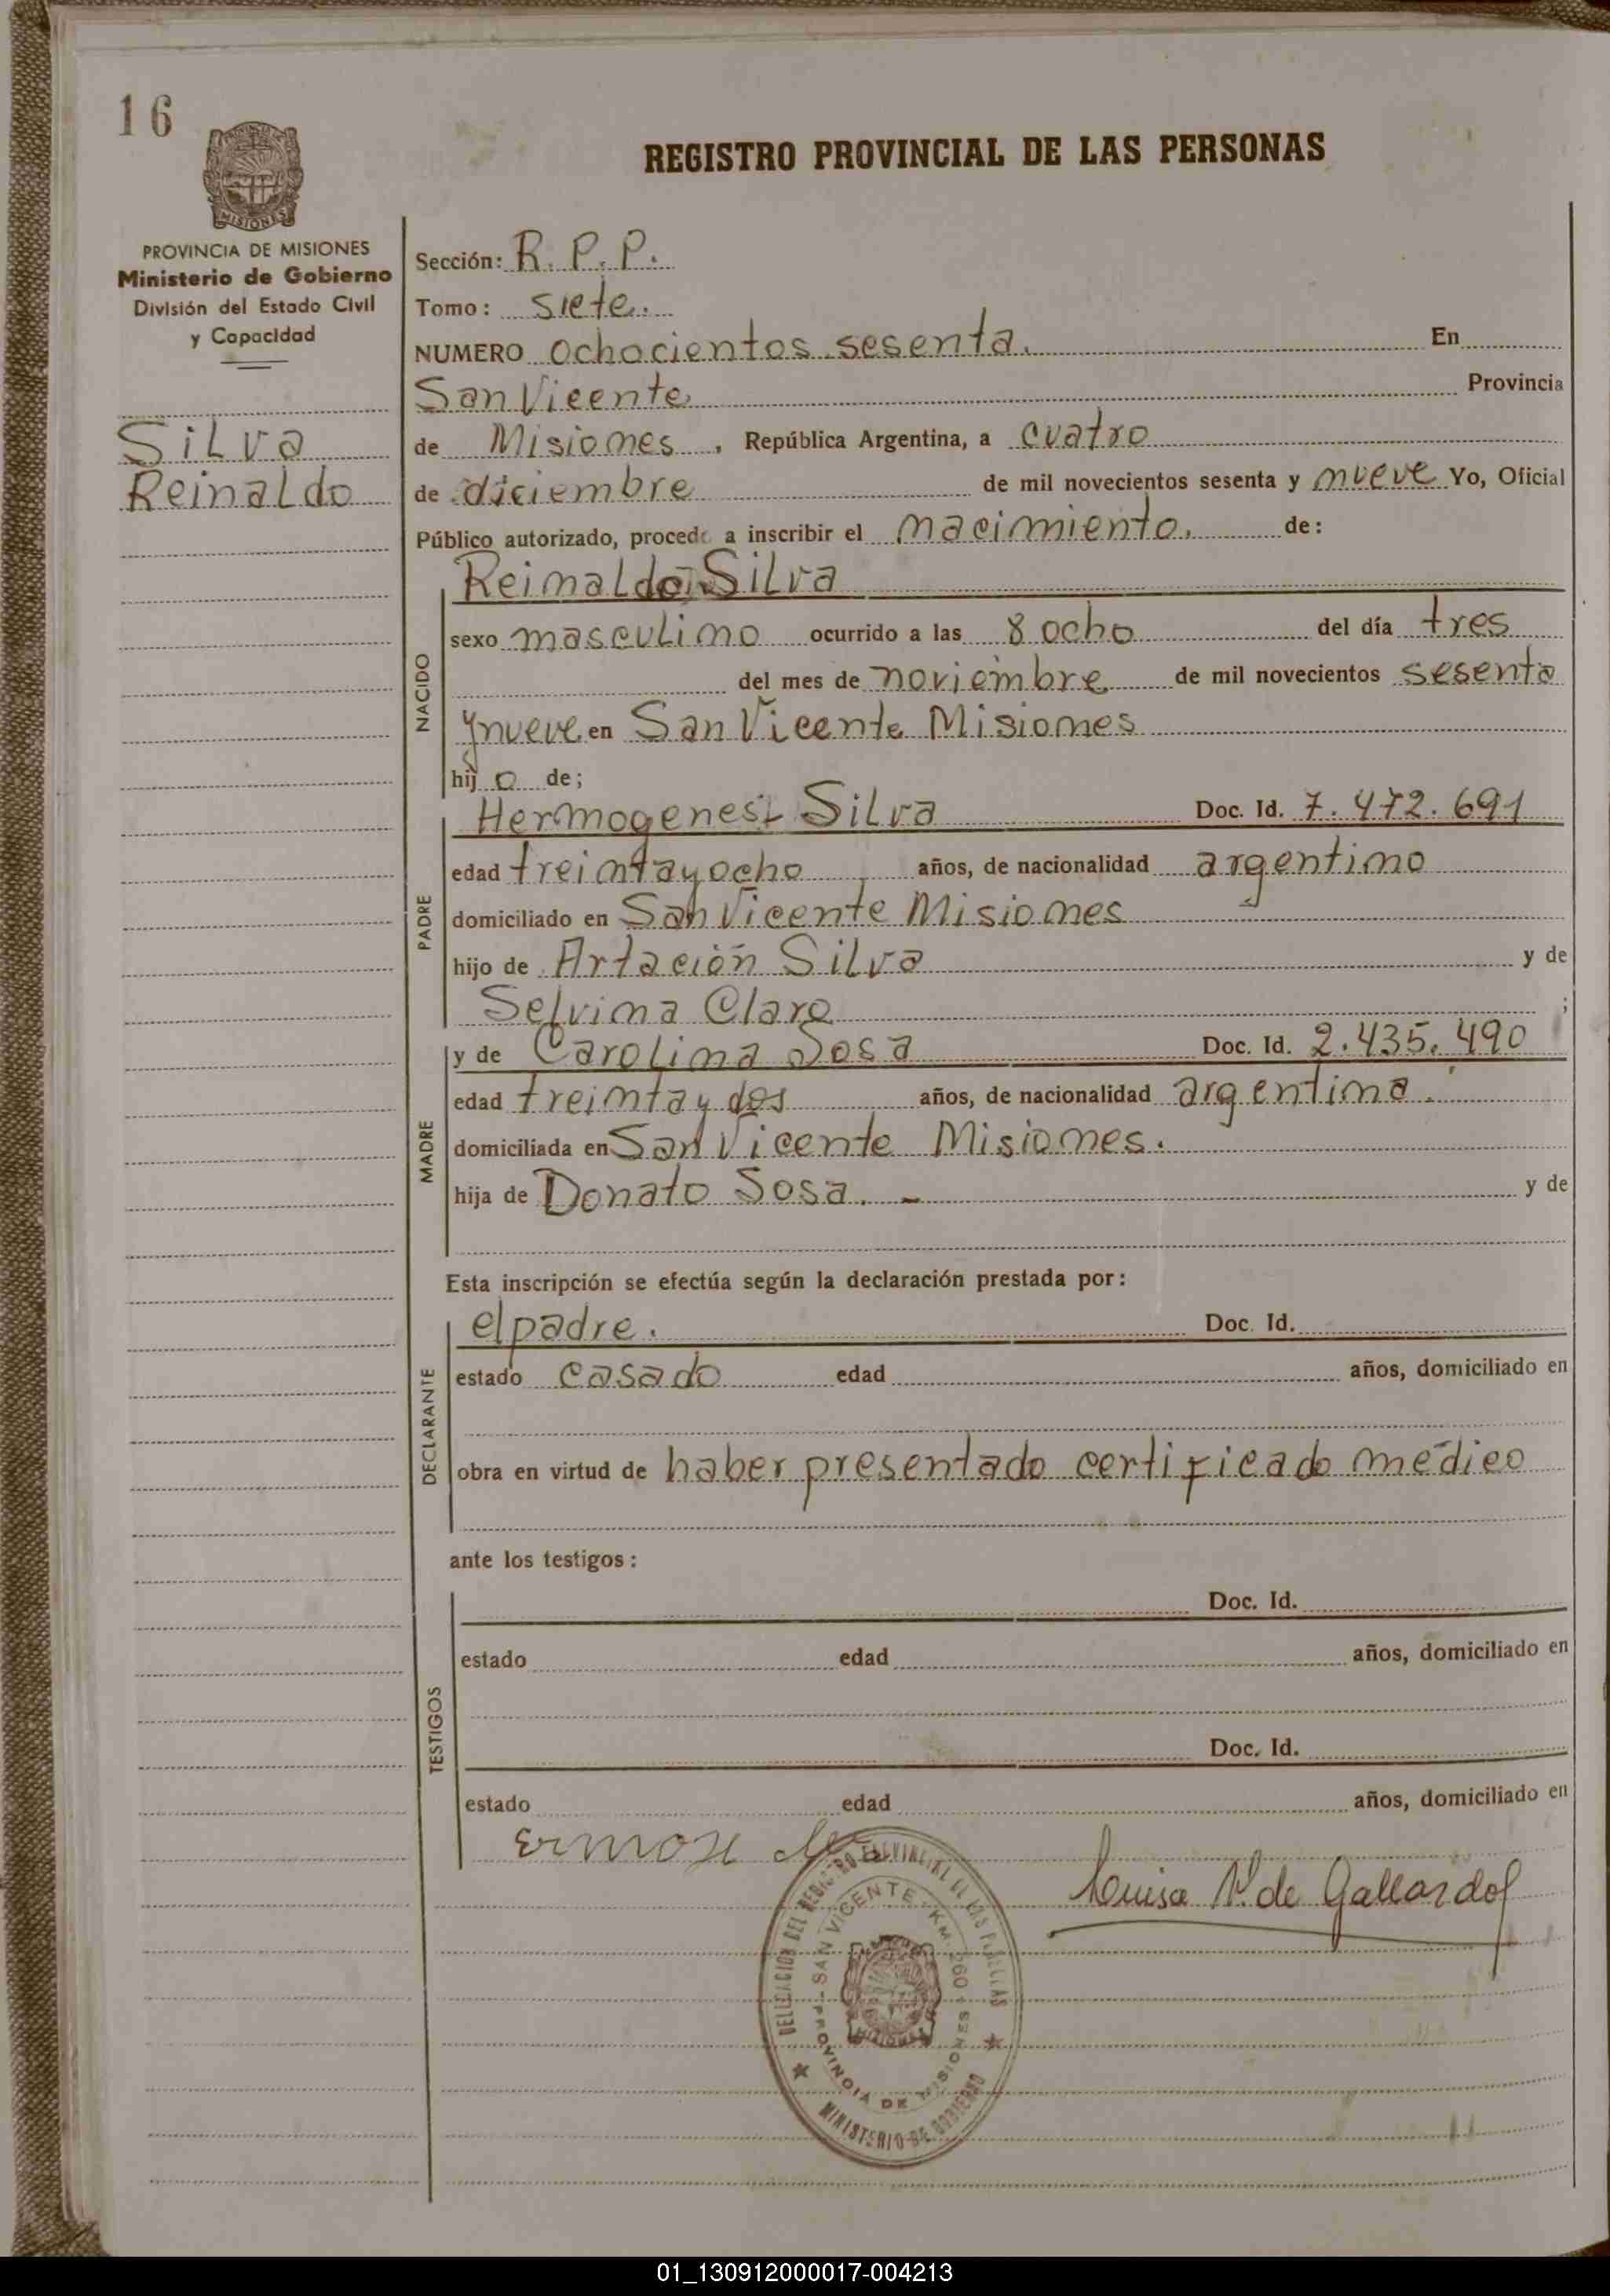 16
REGISTRO PROVINCIAL DE LAS PERSONAS
MISIONES
PROVINCIA DE MISIONES
Ministerio de Gobierno
División del Estado Civil
y Capacidad
Silva
Reinaldo
Sección: R. P. P.
Tomo: siete.
NUMERO ochocientos sesenta. En
San Vicente Provincia
de Misiones, República Argentina, a cuatro
de diciembre de mil novecientos sesenta y nueve Yo, Oficial
Público autorizado, procedo a inscribir el nacimiento. de:
Reinaldo Silva
NACIDO
sexo masculino ocurrido a las 8 ocho del día tres
del mes de noviembre de mil novecientos sesenta
y nueve en San Vicente Misiones
hijo de;
PADRE
Hermogenes Silva Doc. Id. 7.472.691
edad treinta y ocho años, de nacionalidad argentino
domiciliado en San Vicente Misiones
hijo de Artación Silva y de
Selvina Claro ;
MADRE
y de Carolina Sosa Doc. Id. 2.435.490
edad treinta y dos años, de nacionalidad argentina.
domiciliada en San Vicente Misiones.
hija de Donato Sosa. - y de
Esta inscripción se efectúa según la declaración prestada por:
DECLARANTE
el padre. Doc. Id.
estado casado edad años, domiciliado en
obra en virtud de haber presentado certificado médico
ante los testigos:
TESTIGOS
Doc. Id.
estado edad años, domiciliado en
Doc. Id.
estado edad años, domiciliado en
Luisa V. de Gallardo
DELEGACION DEL REGISTRO PROVINCIAL DE LAS PERSONAS
SAN VICENTE - KM. 260
PROVINCIA DE MISIONES
MINISTERIO DE GOBIERNO
01_130912000017-004213